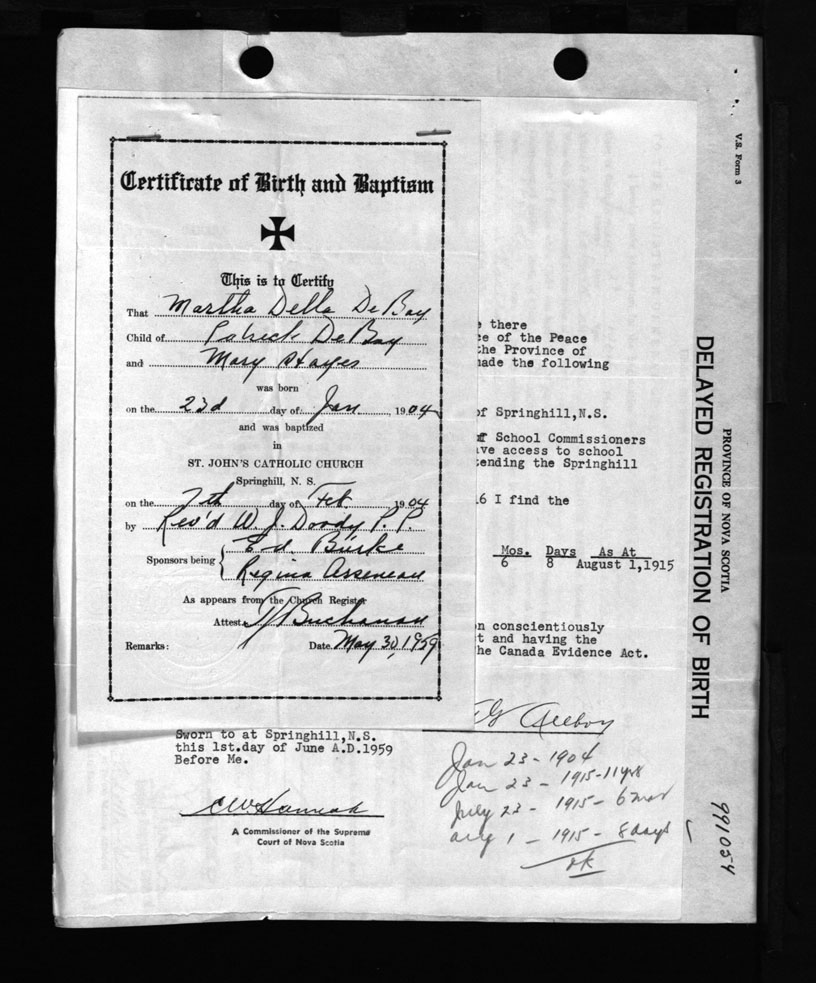 Certificate of Birth and Baptism
This is to Certify
That Martha Della De Bay
Child of Patrick De Bay
and Mary Hayes
was born
on the 23d day of Jan 1904
and was baptized
in
ST. JOHN'S CATHOLIC CHURCH
Springhill, N. S.
on the 7th day of Feb. 1904
by Rev'd W. J. Doody P. P.
Sponsors being Ed. Burke
Regina Arseneau
As appears from the Church Register
Attest. Buchanan
Remarks: Date. May 30, 1959
there
ce of the Peace
the Province of
made the following
of Springhill, N.S.
of School Commissioners
ve access to school
tending the Springhill
16 I find the
Mos. Days As At
6 8 August 1, 1915
n conscientiously
t and having the
he Canada Evidence Act.
Sworn to at Springhill, N.S.
this 1st. day of June A.D. 1959
Before Me.
A Commissioner of the Supreme
Court of Nova Scotia
Jan 23 - 1904
Jan 23 - 1915 - 11 yrs
July 23 - 1915 - 6 mos
Aug 1 - 1915 - 8 days
ok
V.S. Form 3
PROVINCE OF NOVA SCOTIA
DELAYED REGISTRATION OF BIRTH
991054